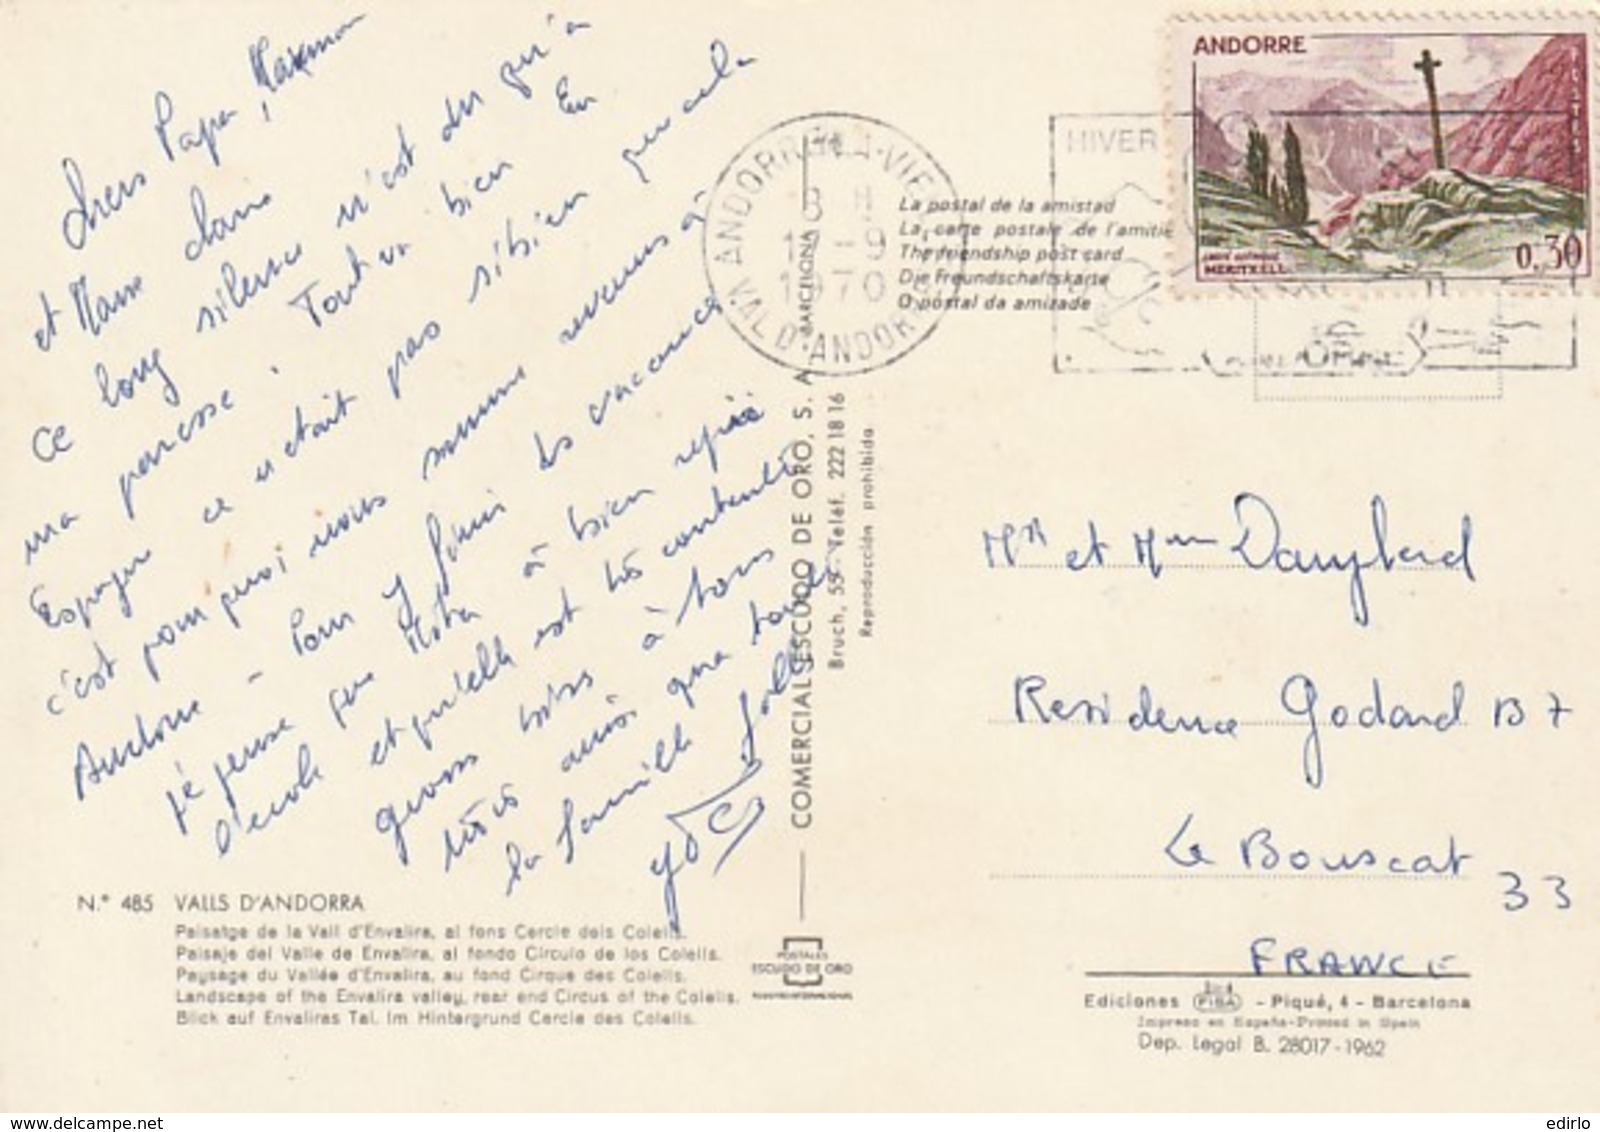 Chers Papa, Maman
et Mame dans
ce long silence n'est du qu'à
ma paresse. Tout va bien En
Espagne ce n'était pas si bien que cela
c'est pourquoi nous sommes revenus à
Andorre - Pour J finir les vacances
je pense que à bien repris
l'école et qu'elle est très contente
gros bises à tous
aussi que toute
la famille
ANDORRE
POSTES
MERITXELL
0,30
ANDORRE-LA-VIEILLE
VAL D'ANDORRE
8 H
1 -9
1970
HIVER
La postal de la amistad
La carte postale de l'amitié
The friendship post card
Die Freundschaftskarte
O postal da amizade
COMERCIAL ESCUDO DE ORO, S. A. BARCELONA
Bruch, 55 - Teléf. 222 18 16
Reproducción prohibida
Mr et Mme
Residence Godard B7
Le Bouscat
33
FRANCE
N.° 485 VALLS D'ANDORRA
Paisatge de la Vall d'Envalira, al fons Cercle dels Colells.
Paisaje del Valle de Envalira, al fondo Circulo de los Colells.
Paysage du Vallée d'Envalira, au fond Cirque des Colells.
Landscape of the Envalira valley, rear end Circus of the Colells.
Blick auf Envaliras Tal. Im Hintergrund Cercle des Colells.
POSTALES
ESCUDO DE ORO
Ediciones FISA - Piqué, 4 - Barcelona
Impreso en España-Printed in Spain
Dep. Legal B. 28017-1962
delcampe.net
edirlo